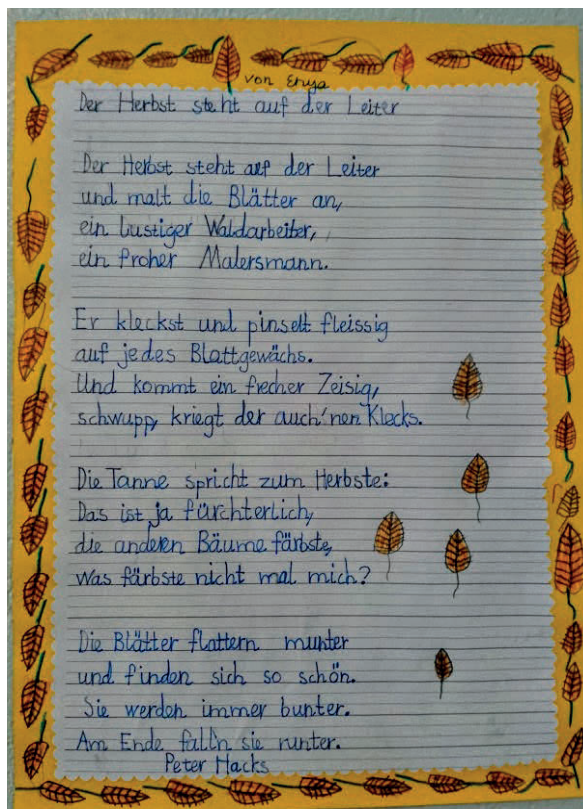 von Enya
Der Herbst steht auf der Leiter
Der Herbst steht auf der Leiter
und malt die Blätter an,
ein lustiger Waldarbeiter,
ein froher Malersmann.
Er kleckst und pinselt fleissig
auf jedes Blattgewächs.
Und kommt ein frecher Zeisig,
schwupp, kriegt der auch'nen Klecks.
Die Tanne spricht zum Herbste:
Das ist ja fürchterlich,
die anderen Bäume färbste,
was färbste nicht mal mich?
Die Blätter flattern munter
und finden sich so schön.
Sie werden immer bunter.
Am Ende fall'n sie runter.
Peter Hacks